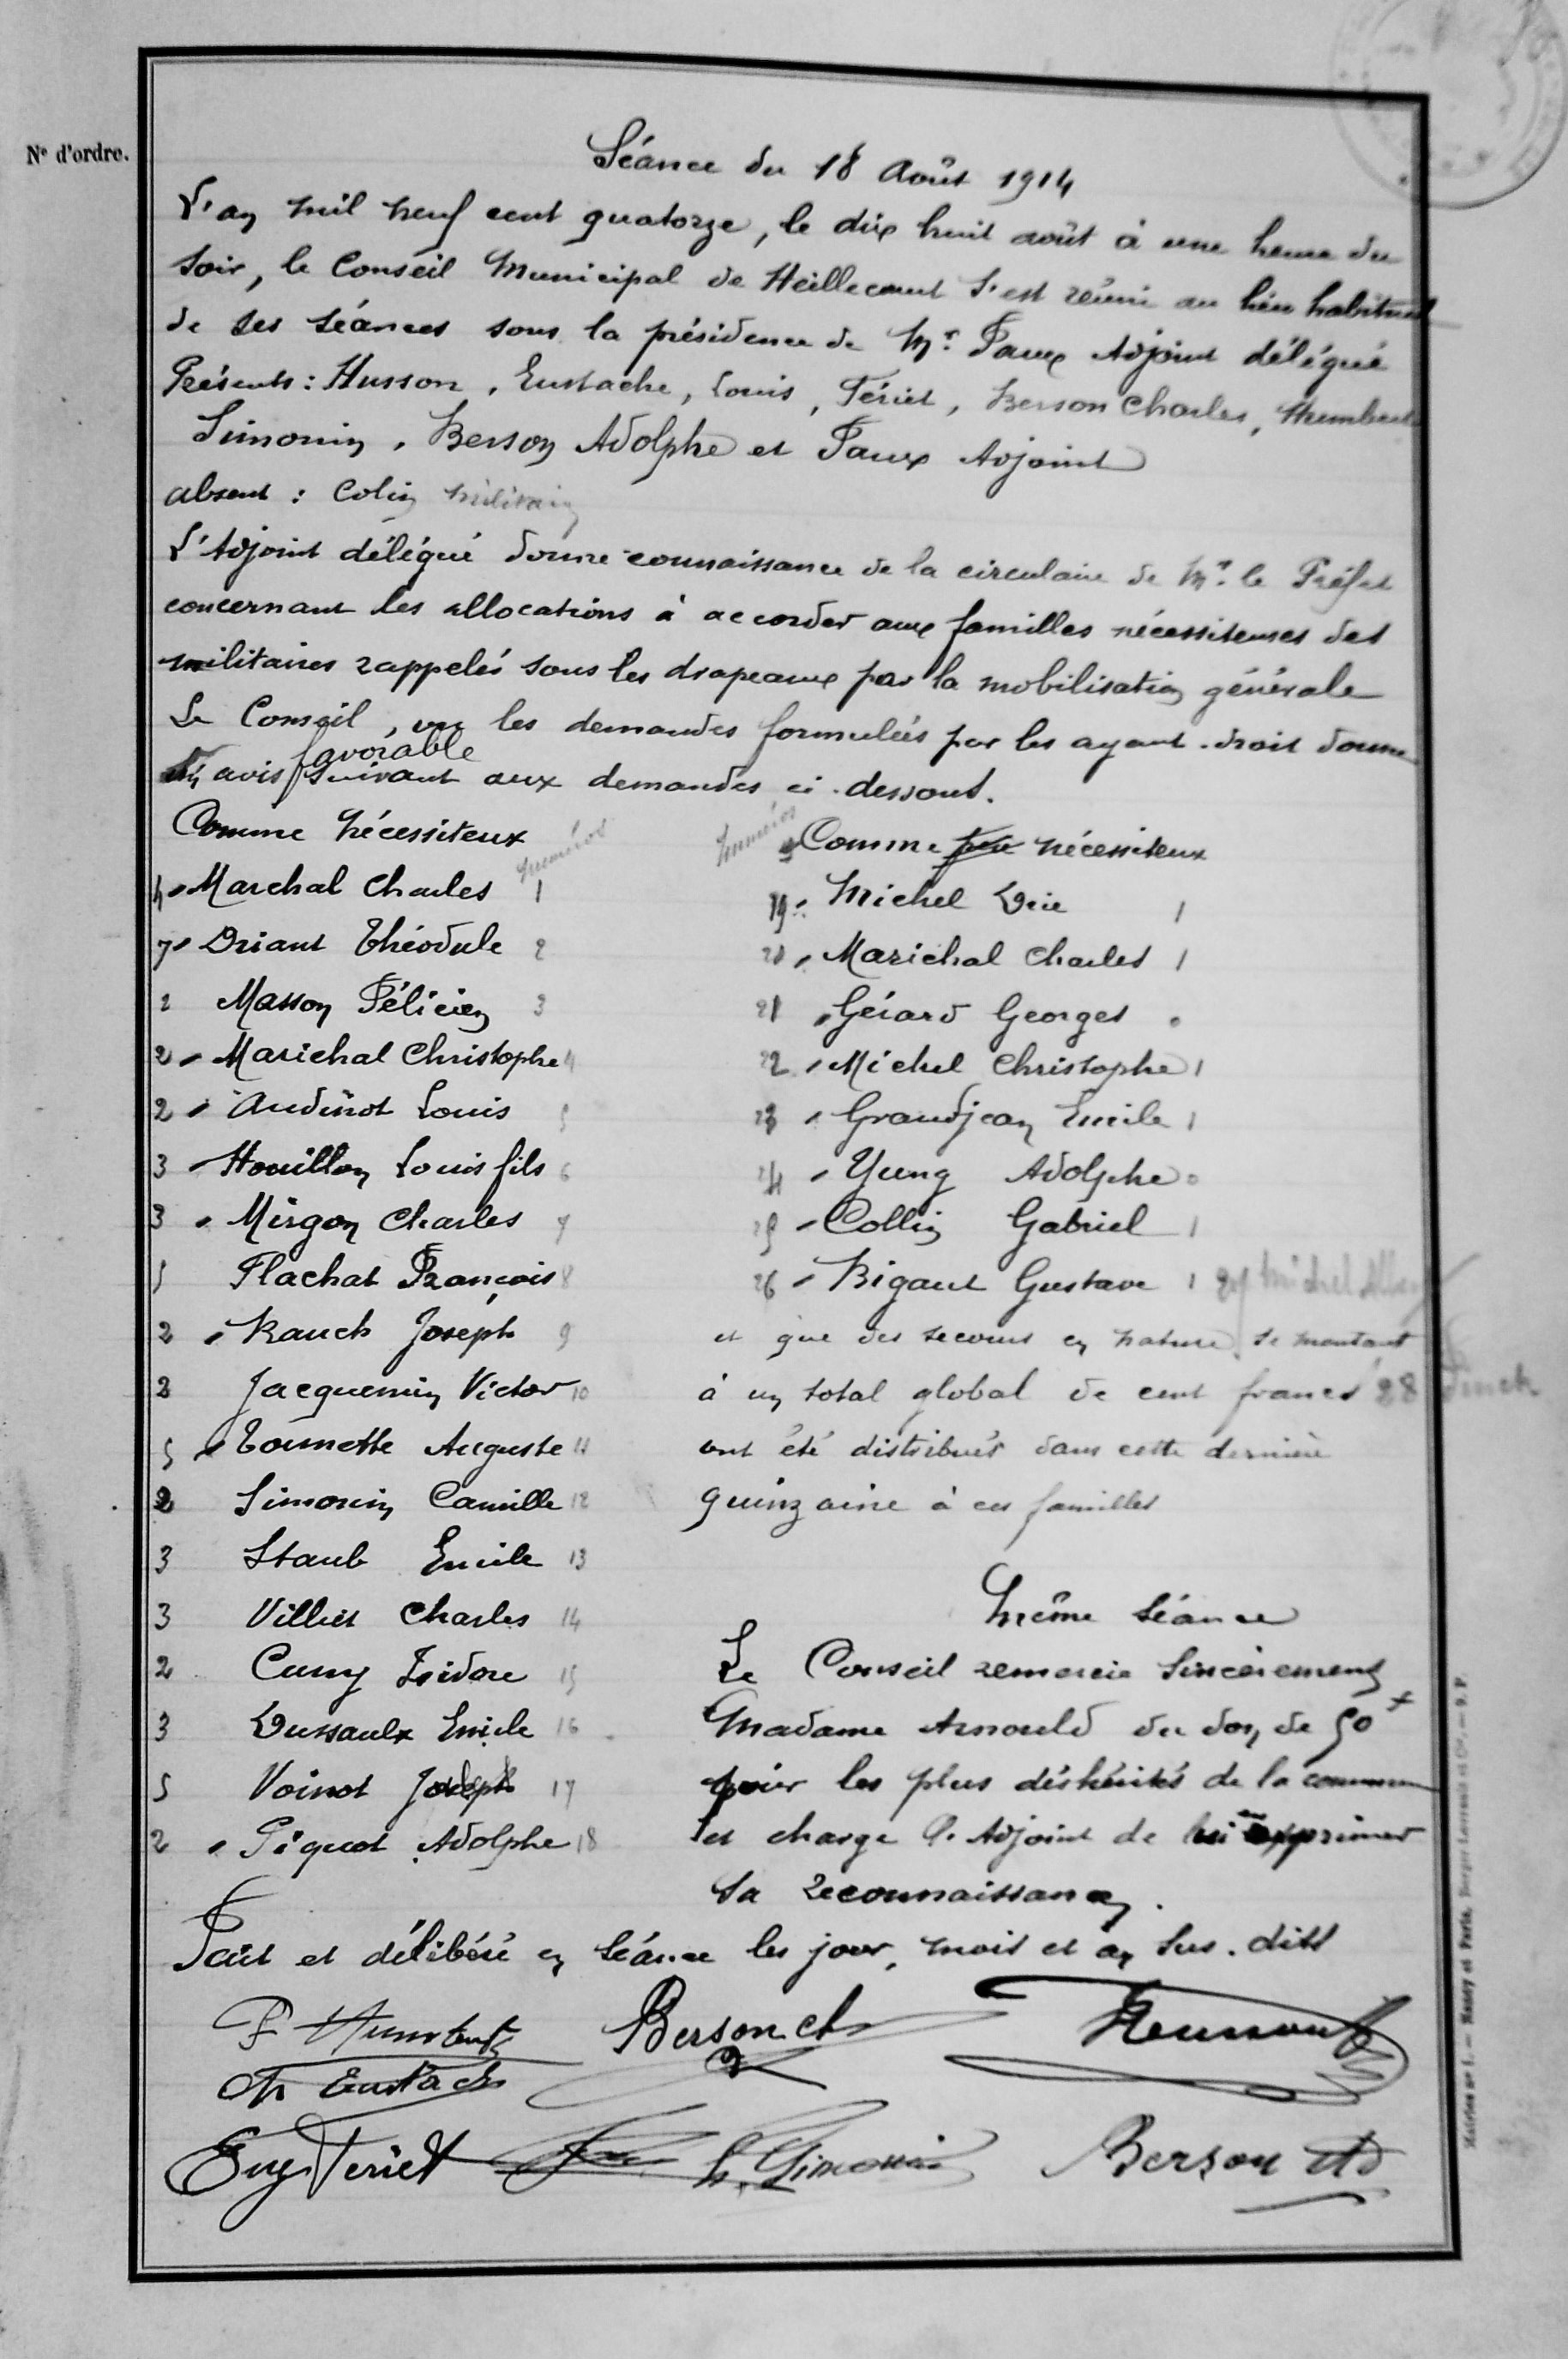 N° d'ordre.
Séance du 18 Août 1914
L'an mil neuf cent quatorze, le dix huit août à une heure du
soir, le Conseil Municipal de Heillecourt s'est réuni au lieu habituel
de ses séances sous la présidence de Mr. Faux Adjoint délégué
Présents : Husson, Eustache, Louis, Fériet, Berson Charles, Humbert
Simonin, Berson Adolphe et Faux Adjoint
absent : Colin militaire
L'Adjoint délégué donne connaissance de la circulaire de Mr. le Préfet
concernant les allocations à accorder aux familles nécessiteuses des
militaires rappelés sous les drapeaux par la mobilisation générale
Le Conseil, vu les demandes formulées par les ayant-droit donne
favorable
un avis suivant aux demandes ci-dessous.
Comme nécessiteux
numéros
4 Marchal Charles 1
7 Driant Théodule 2
2 Masson Félicien 3
2 Marichal Christophe 4
2 Audinot Louis 5
3 Houillon Louis fils 6
3 Mirgon Charles 7
5 Flachat François 8
2 Rauch Joseph 9
2 Jacquemin Victor 10
5 Tounette Auguste 11
2 Simonin Camille 12
3 Staub Emile 13
3 Villiet Charles 14
2 Cuny Isidore 15
3 Dussaulx Emile 16
5 Voinot Joseph 17
2 Piquot Adolphe 18
numéros
Comme nécessiteux
19 Michel 1
20 Marichal Charles 1
21 Gérard Georges 0
22 Michel Christophe 1
23 Grandjean Emile 1
24 Yung Adolphe 0
25 Collin Gabriel 1
26 Bigaut Gustave 1 27 Michel
et que des secours en nature se montant
à un total global de cent francs 28
ont été distribués dans cette dernière
quinzaine à ces familles
Même séance
Le Conseil remercie sincèrement
Madame Arnould du don de 50 f
pour les plus déshérités de la commune
et charge l'Adjoint de lui en exprimer
sa reconnaissance.
Fait et délibéré en séance les jour, mois et an sus-dits
F Humbert Berson ch Husson
Ch Eustache
Eug Feriet Simonin Berson Ad
Mairies n° 1. — Nancy et Paris, Berger-Levrault et Cie. — 9. P.